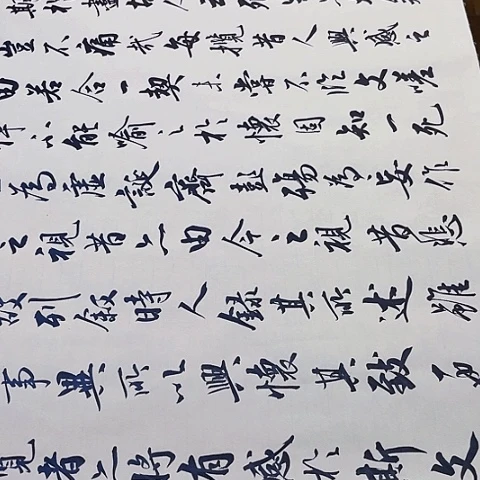 豈不痛哉每攬昔人興感之
由若合一契未嘗不臨文嗟
悼不能喻之於懷固知一死
為虛誕齊彭殤為妄作
之視昔亦由今之視昔悲
故列敘時人錄其所述雖
事異所以興懷其致
覽者亦將有感於斯文